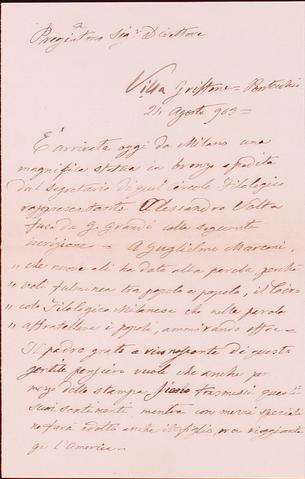 Pregiatmo Sigr Direttore
Villa Griffone = Pontecchio
21 Agosto 903 =
È arrivata oggi da Milano una
magnifica statua in bronzo spedita
dal segretario di quel circolo Filologico
rappresentante Alessandro Volta
fusa da G. Grandi colla seguente
iscrizione = A Guglielmo Marconi,
" che nuove ali ha dato alla parola, perchè
" voli fulminea tra popolo e popolo, il Circo
" colo Filologico Milanese che nella parola
" affratellava i popoli, ammirando offre =
Il padre grato e riconoscente di questo
gentile pensiero vuole che anche per
mezzo della stampa siano trasmessi questi
suoi sentimenti mentre con mezzi speciali
ne farà edotto anche il figlio, ora viaggiante
per l'America =